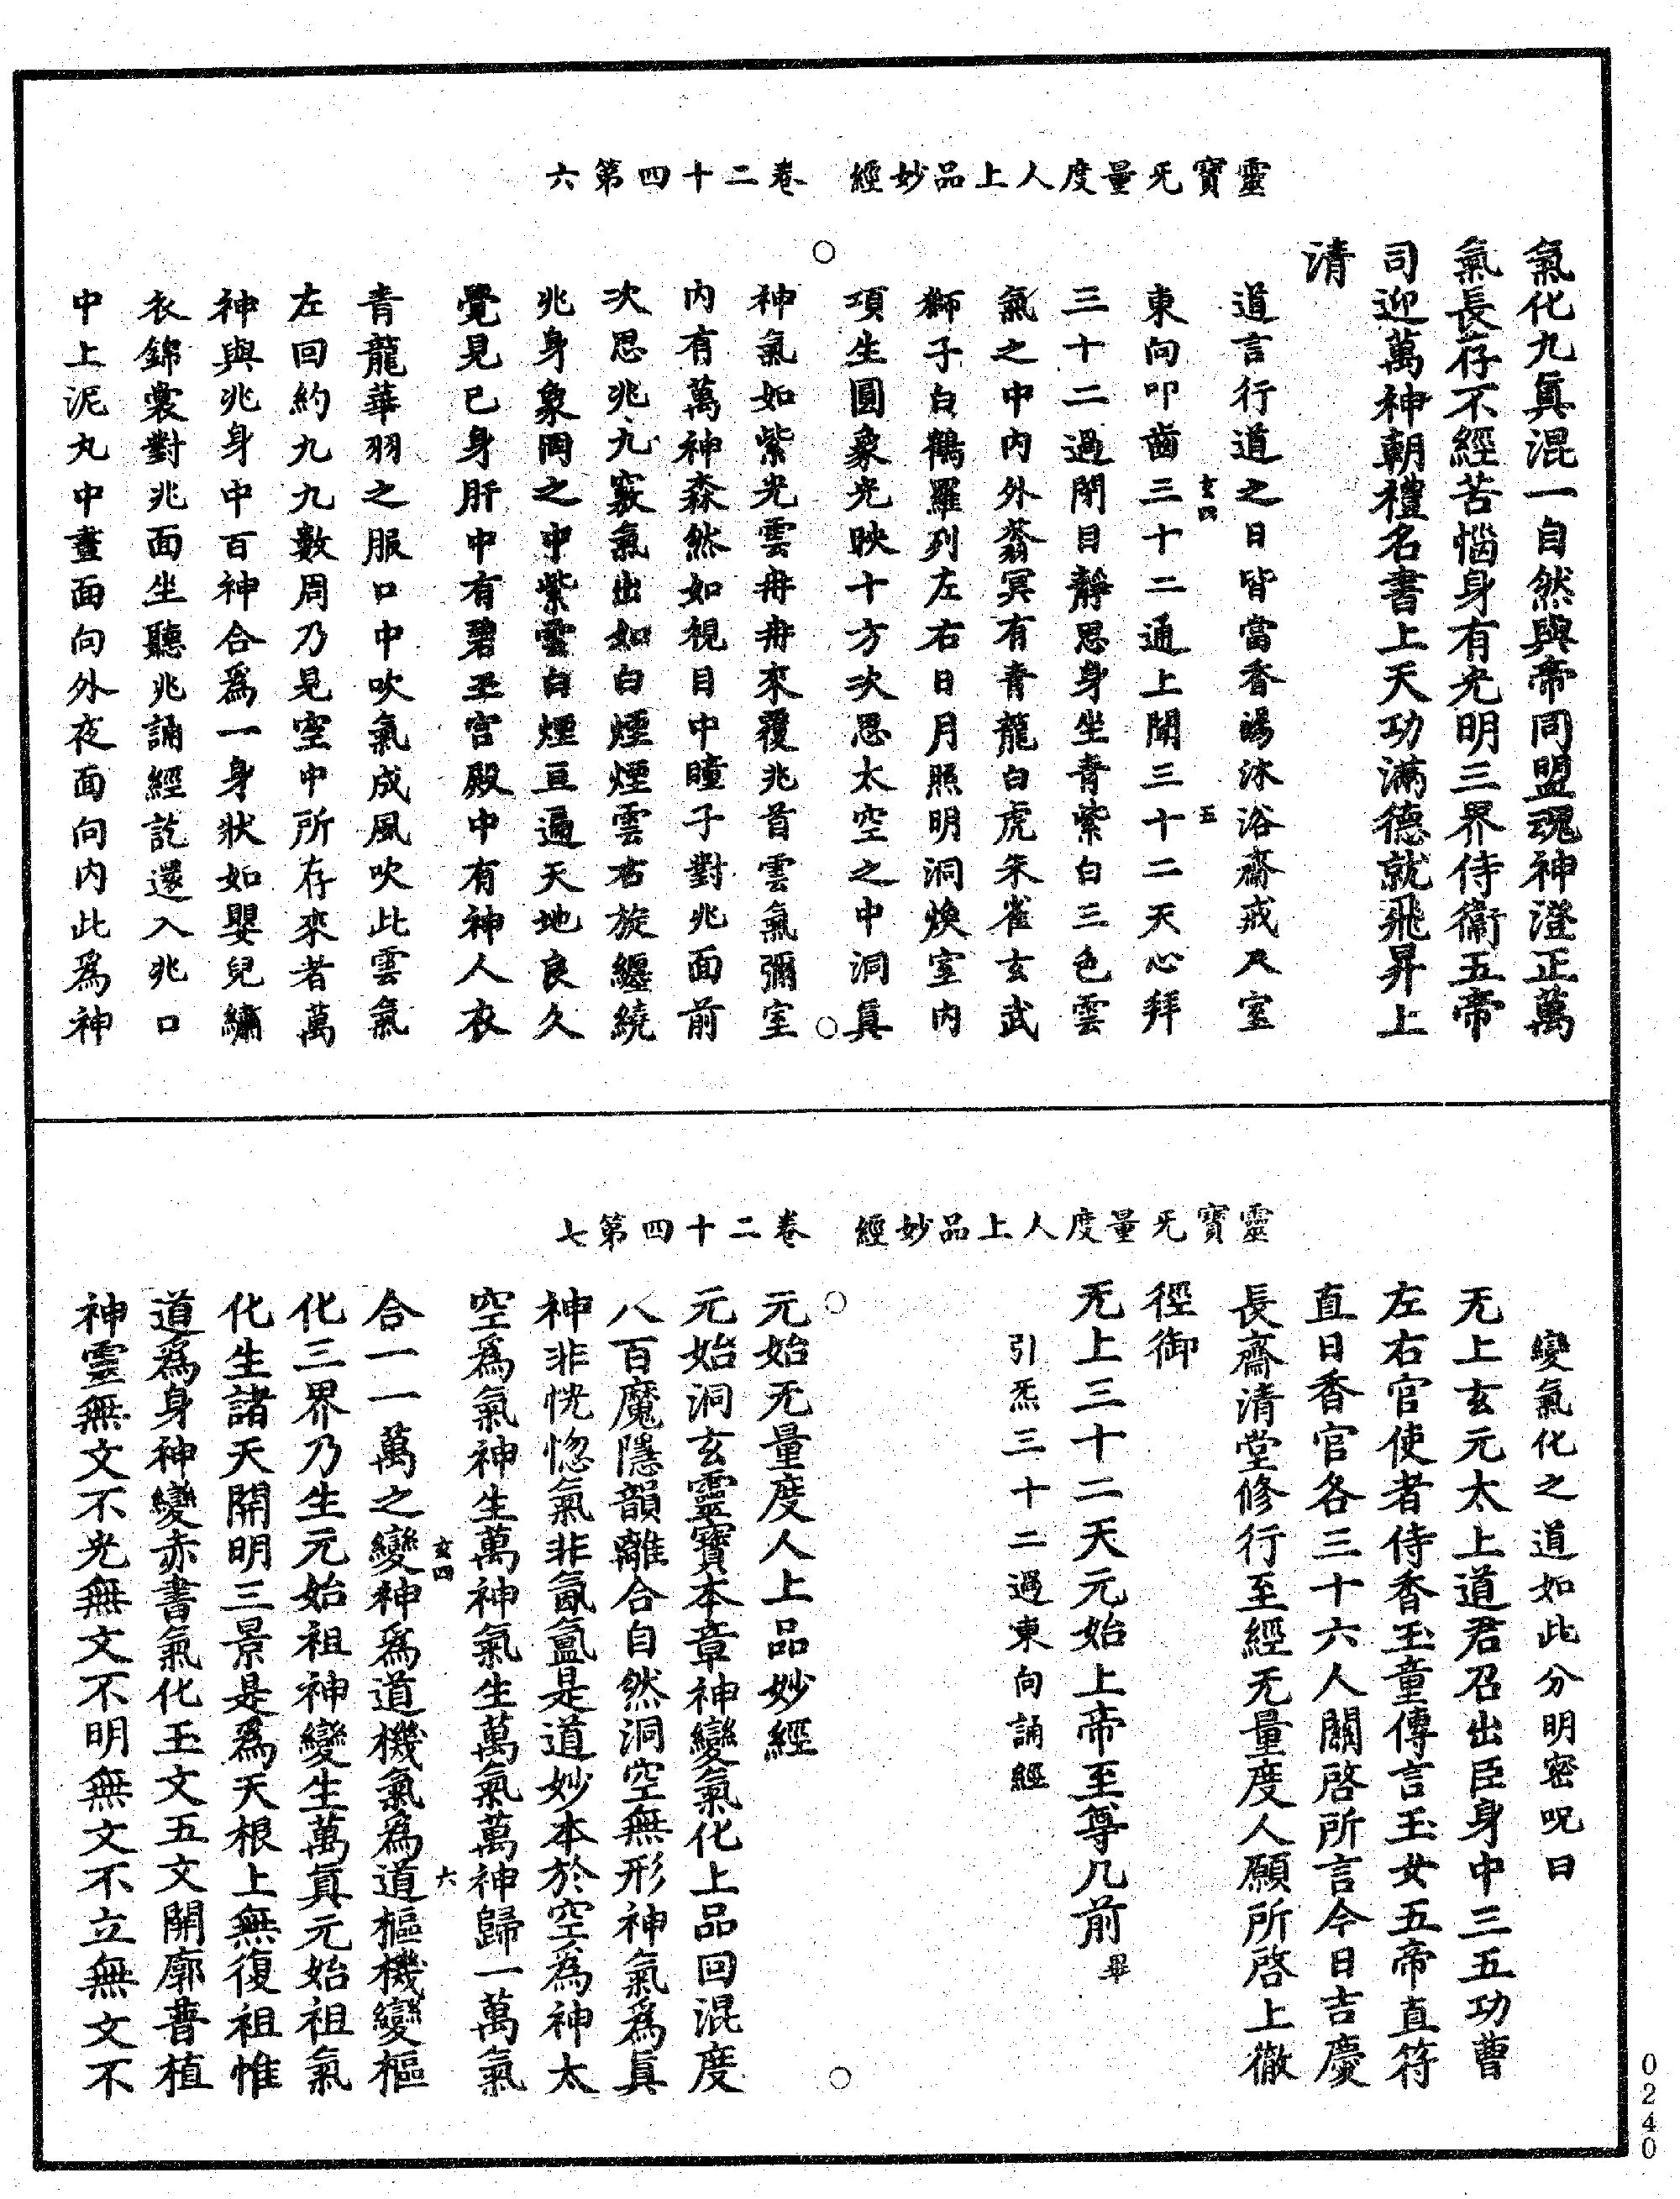 靈寶无量度人上品妙經　卷二十四第六
氣化九眞混一自然與帝同盟魂神澄正萬
氣長存不經苦惱身有光明三界侍衞五帝
司迎萬神朝禮名書上天功滿德就飛昇上
清
道言行道之日皆當香湯沐浴齋戒入室
玄四　五
東向叩齒三十二通上聞三十二天心拜
三十二過閉目靜思身坐青紫白三色雲
氣之中內外蓊冥有青龍白虎朱雀玄武
獅子白鶴羅列左右日月照明洞煥室內
項生圓象光映十方次思太空之中洞眞
神氣如紫光雲冉冉來覆兆首雲氣彌室
內有萬神森然如視目中瞳子對兆面前
次思兆九竅氣出如白煙煙雲右旋纏繞
兆身象罔之中紫雲白煙亘遍天地良久
覺見己身肝中有碧玉宮殿中有神人衣
青龍華羽之服口中吹氣成風吹此雲氣
左回約九九數周乃見空中所存來者萬
神與兆身中百神合爲一身狀如嬰兒繡
衣錦裳對兆面坐聽兆誦經訖還入兆口
中上泥丸中晝面向外夜面向內此爲神
靈寶无量度人上品妙經　卷二十四第七
變氣化之道如此分明密呪曰
无上玄元太上道君召出臣身中三五功曹
左右官使者侍香玉童傳言玉女五帝直符
直日香官各三十六人關啓所言今日吉慶
長齋清堂修行至經无量度人願所啓上徹
徑御
无上三十二天元始上帝至尊几前畢
引炁三十二過東向誦經
元始无量度人上品妙經
元始洞玄靈寶本章神變氣化上品回混度
八百魔隱韻離合自然洞空無形神氣爲眞
神非恍惚氣非氤氳是道妙本於空爲神太
空爲氣神生萬神氣生萬氣萬神歸一萬氣
玄四　六
合一一萬之變神爲道機氣爲道樞機變樞
化三界乃生元始祖神變生萬眞元始祖氣
化生諸天開明三景是爲天根上無復祖惟
道爲身神變赤書氣化玉文五文開廓普植
神靈無文不光無文不明無文不立無文不
0240